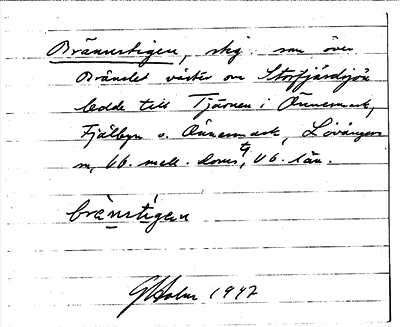 Brännstigen, stig som över
Brånslet väster om Storfjärdsjön
ledde till Tjärnen i Önnesmark,
Fjälbyn o. Önnesmark, Lövångers
sn, Vb. mell. kontr., Vb. län.
brä̀nstigen
GHolm 1942